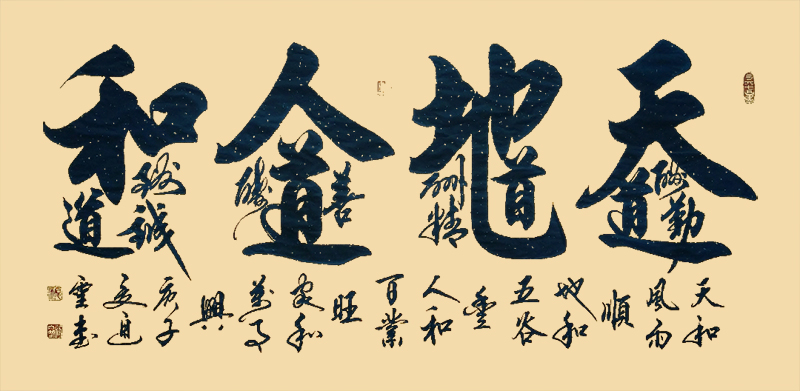 天道酬勤
地道酬精
人道酬善
和道酬誠
天和
風雨
順
地和
五谷
豐
人和
百業
旺
家和
萬事
興
庚子